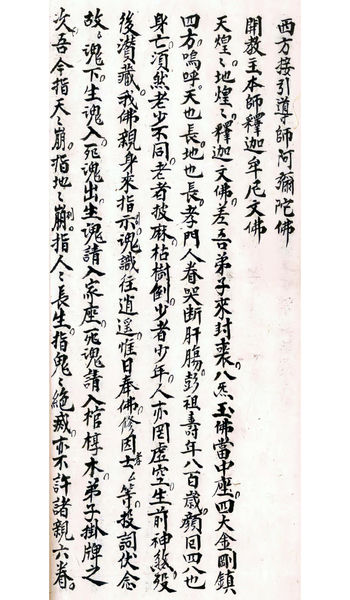 西方接引導師阿彌陀佛
開教主本師釋迦牟尼文佛
天煌〻地煌〻釋迦文佛差吾弟子來封喪八炁玉佛當中座四大金剛鎮
四方嗚呼天也長地也長孝門人眷哭断肝腸彭祖壽年八百歲顏囘四八也
身亡湏然老少不同老者披麻枯樹倒少者少年人亦罔虛空生前神煞役
後瀆藏我佛親身來指示魂識往逍遥惟日奉佛修因士孝〻等投詞伏念
故〻魂下生魂入死魂出生魂請入家座死魂請入棺椁木弟子掛牌之
次吾今指天〻崩指地〻崩指人〻長生指鬼〻絕滅亦不許諸親六眷